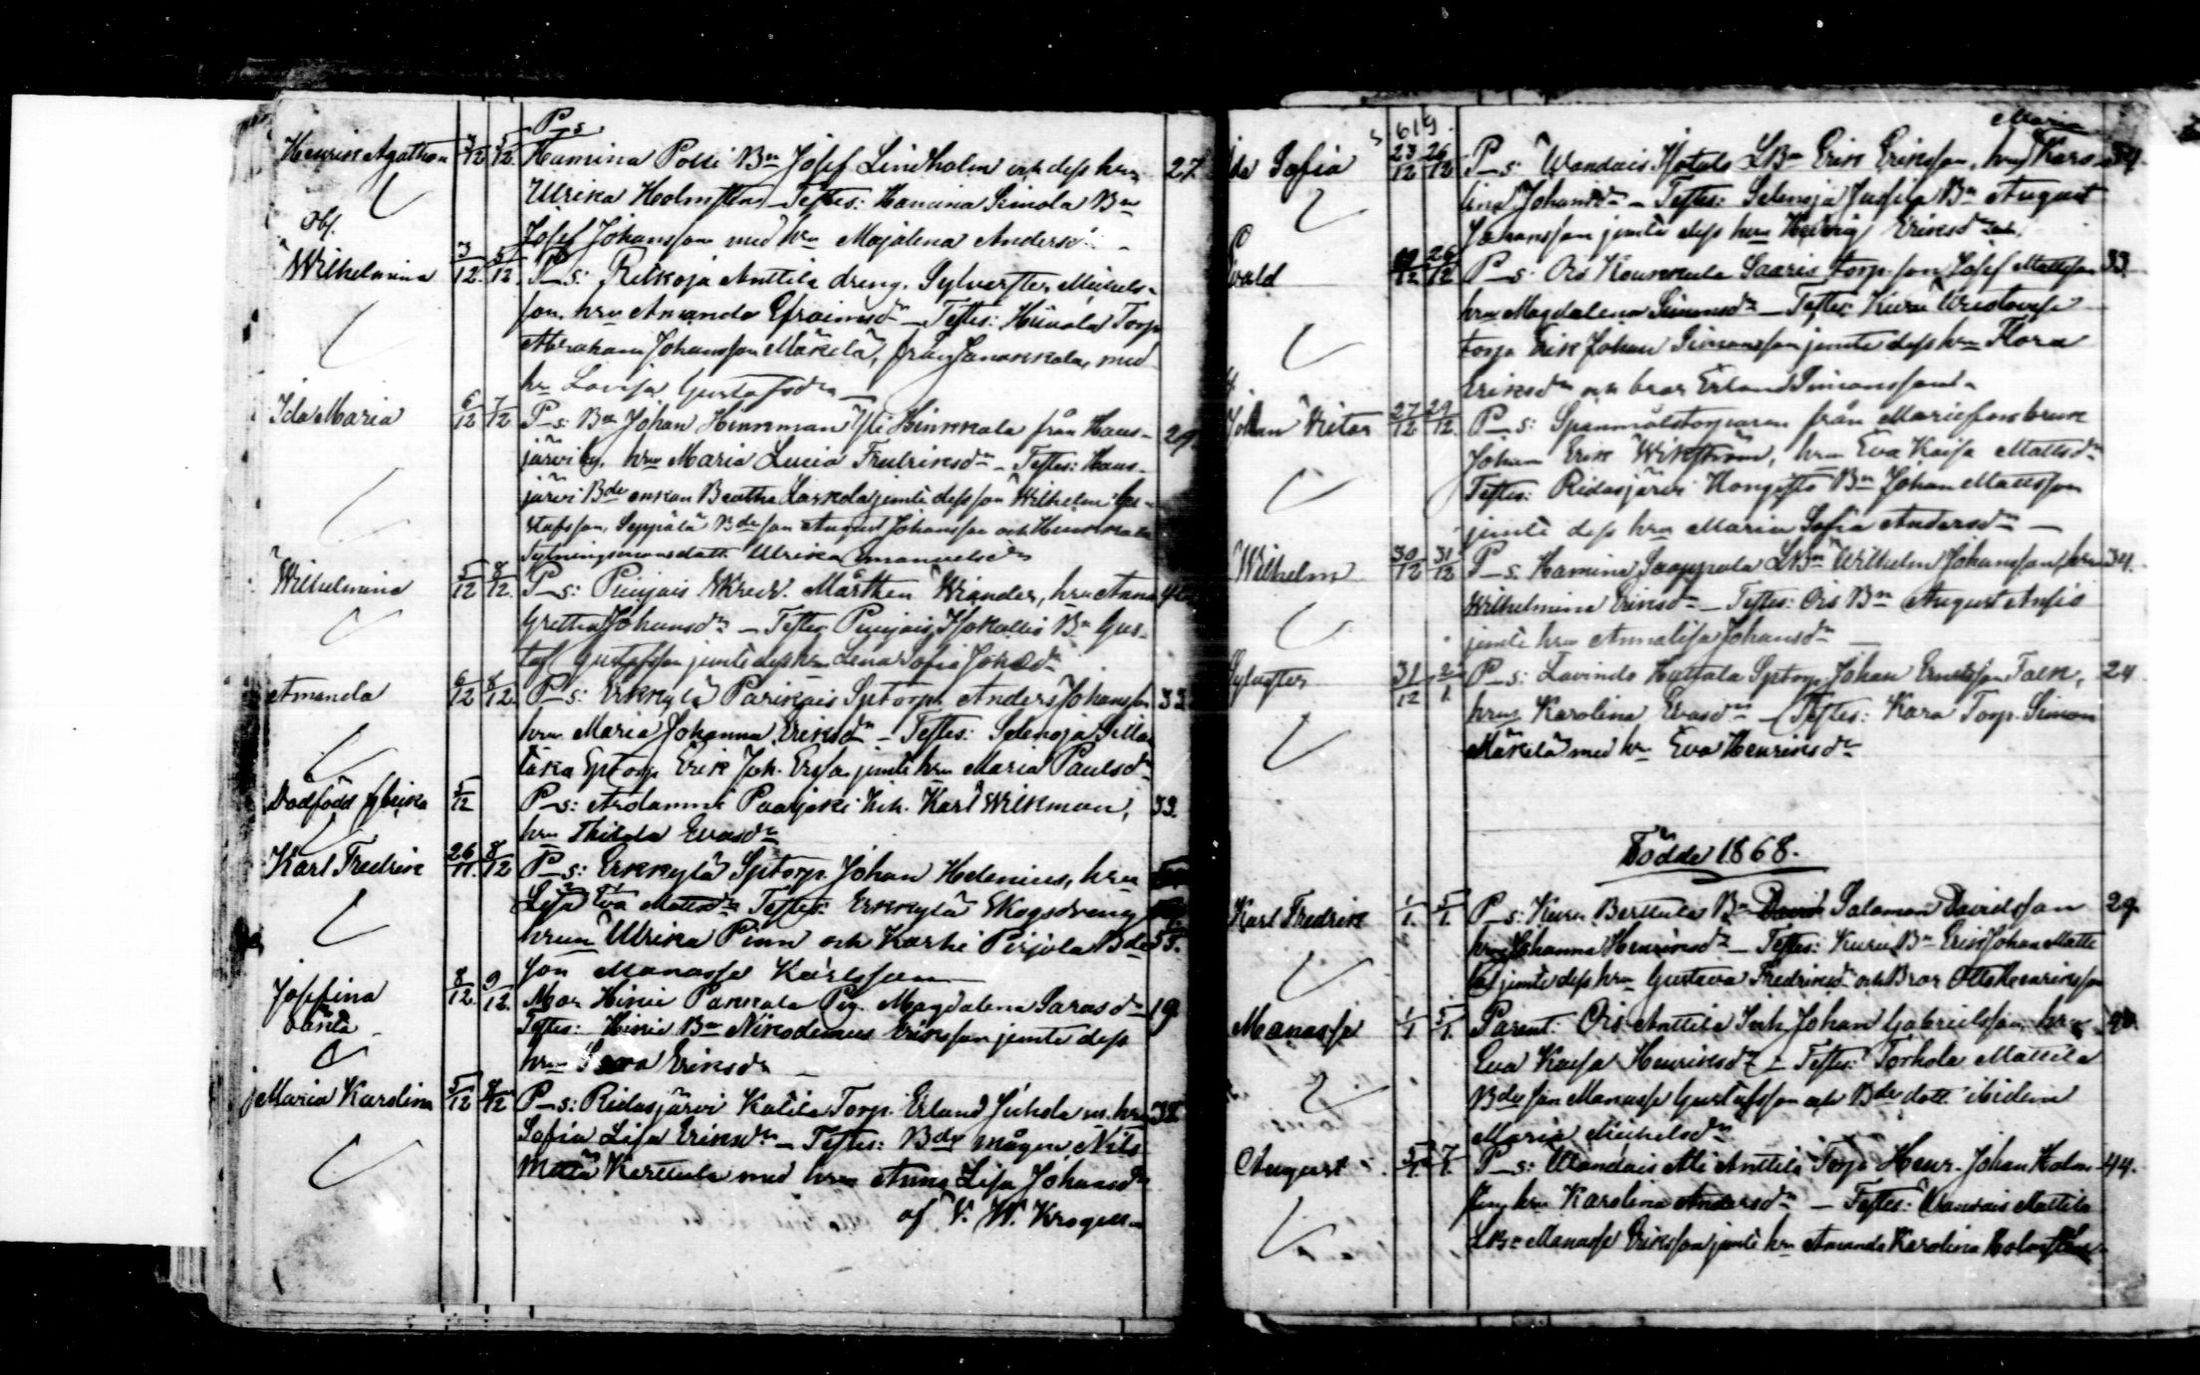 P_s
Henrik Agathon 3/12 5/12 Hamina Polsi Bn Josef Lindholm och dess hru 27.
Ulrika Holmsten – Testes: Hamina Simola Bn
Obs. Josef Johansson med hru Majalena Andersd
Wilhelmina 3/12 5/12 P_s: Retkoja Anttila dreng. Sylverster Michels-
son, hru Amanda Efraimsdr – Testes: Torp
Abraham Johansson Mäkelä, från Janakkala, med
hru Lovisa Gustafsdr –
Ida Maria 6/12 7/12 P_s: Bn Johan Heinkman från Haus- 29.
järvi by, hru Maria Lucia Fredriksdr – Testes: Haus-
järvi Bde enkan Beatha jemte dess son Wilhelm Gu-
stafsson, Seppälä Bde son August Johansson och
dott. Ulrika Emanuelsdr
Wilhelmina 5/12 8/12 P_s: Puujois Skredd. Mårthen Wiander, hru Anna
Gretha Johansdr – Testes Puujois Isokallio Bn Gus-
taf Gustafsson jemte dess hru Lena Sofia Johsdr
Amanda 6/12 8/12 P_s: Erkkylä Parikais Sptorp. Anders Johansson 33
hru Maria Johanna Eriksdr – Testes: Selenoja
Sptorp Erik Joh. Ersson jemte hru Maria Paulsdr
Dödfödd flicka 5/12 P_s: Arolammi Paajoki Inh. Karl Wikman, 33.
hru Thilda Evasdr
Karl Fredrik 26/11. 8/12 P_s: Erkkylä Sptorp. Johan Helenius, hru
Lisa Eva Mattsdr Testes Erkkylä Skogsdreng
hrun Ulrika Pinn och Karhi Pirjola Bde
son Manasse Karlsson
Josefina 8/12 9/12. Mor Hikiä Pakkala Pig. Magdalena Sarasdr 19.
oäkta – Testes: Hikiä Bn Nikodemus Eriksson jemte dess
hru Sara Eriksdr –
Maria Karolina 5/12 8/12 P_s: Ridasjärvi Katila Torp. Erland Juhola m. hru 38
Sofia Lisa Eriksdr – Testes: Bde mågen Nils
Kerttula med hru Anna Lisa Johansdr
af V. W. Krogell
619.
Maria
Ida Sofia 23/12 26/12 P_s: Wandais Isotalo LBn Erik Eriksson, hru Karo-
lina Johansdr – Testes: Selenoja Jussila Bn August
Johansson jemte dess hru Hedvig Eriksdr
Evald 26/12 P_s: Ois Kounkula Saaris torp. son Josef Mattsson 33.
hru Magdalena Simonsdr – Testes: Kuru
torp. Erik Johan Simonsson jemte dess hru Flora
Eriksdr och bror Erland Simonsson –
Johan Viktor 27/12 29/12 P_s: Spanmålstorparen från Mariefors bruk
Johan Erik Wikström, hru Eva Kaisa Mattsdr
Testes: Ridasjärvi Hongisto Bn Johan Mattsson
jemte dess hru Maria Sofia Andersdr –
Wilhelm 30/12 31/12 P_s. Hamina Saappala LBn Wilhelm Johansson, hru 34.
Wilhelmina Eriksdr – Testes: Ois Bn August Ansio
jemte hru Annalisa Johansdr –
Sylvester 31/12 2/1. P_s: Lavindo Hattala Sptorp. Johan Ernstsson Falk, 24.
hru Karolina Evasdr – Testes: Kara Torp. Simon
Mäkelä med hru Eva Henriksdr
Födde 1868.
Karl Fredrik 1/1. 5/1. P_s: Kuru Berttula Bn Salomon Davidsson 29.
hru Johanna Henriksdr – Testes: Kuru Bn Erik Johan Matts
son jemte dess hru Gustava Fredriksdr och Bror Otto Henriksson
Manasse 1/1 5/1. Parent: Ois Anttila Inh. Johan Gabrielsson, hru
Eva Kaisa Henriksdr – Testes: Torhola Mattila
Bde son Manasse Gustafsson och Bde dott. ibidem
Maria Michelsdr
August 5/1. 7/1. P_s: Wandais Ali Anttila Torp. Henr. Johan Holm- 44.
sten, hru Karolina Andersdr – Testes: Wandais Mattila
LBn Manasse Eriksson jemte hru Amanda Karolina Holmsten